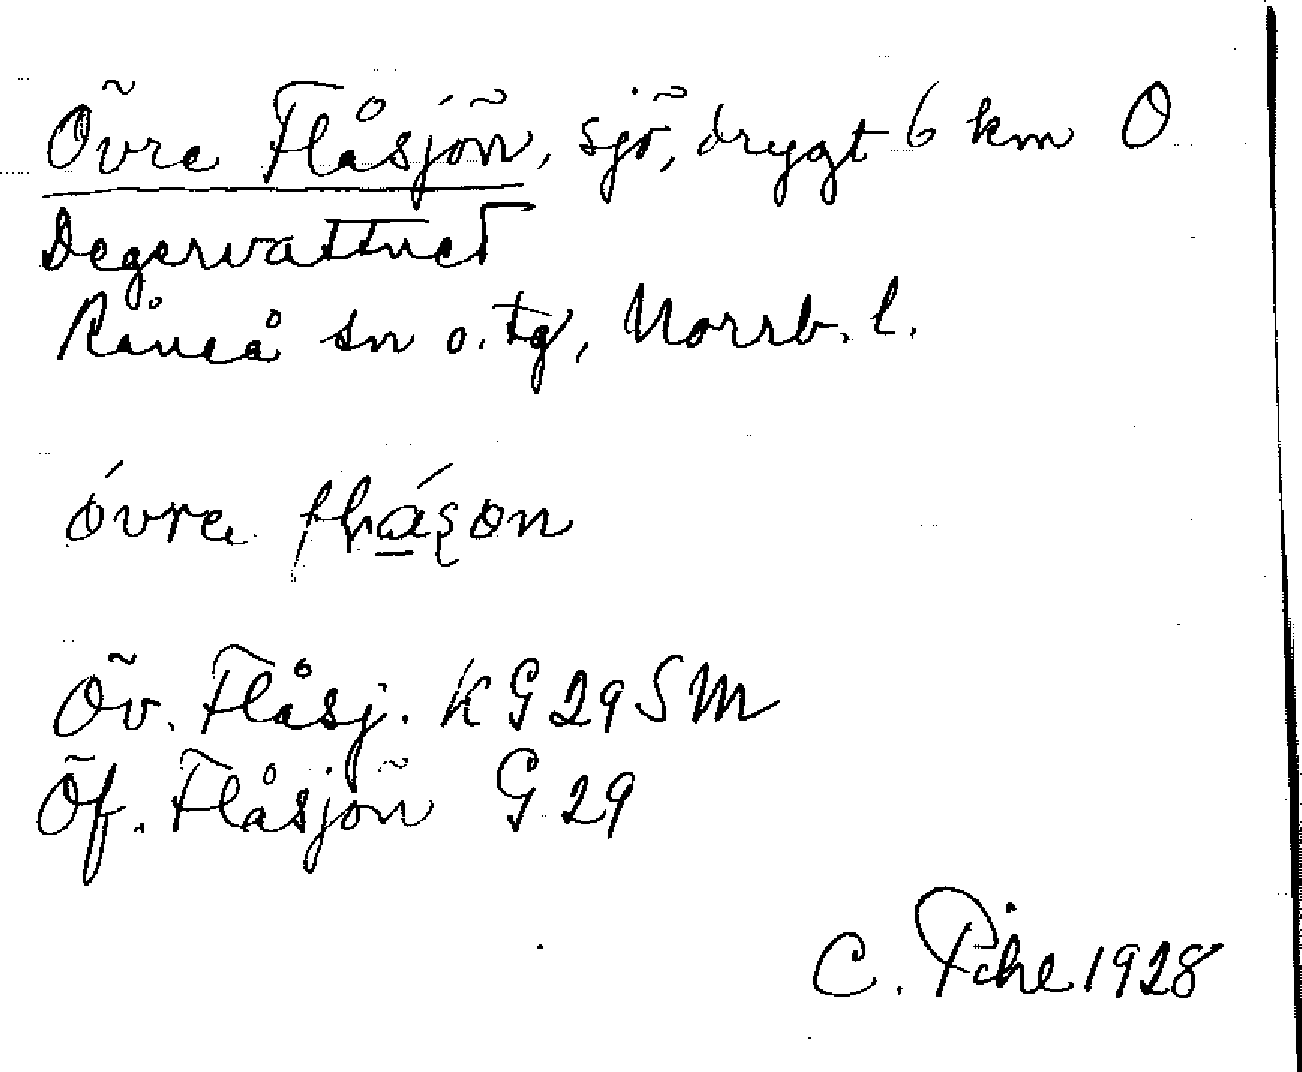 Övre Flåsjön, sjö, drygt 6 km O
Degervattnet
Råneå sn o. tg, Norrb. l.
óvre
Öv. Flåsj. KG29SM
Öf. Flåsjön G29
C. Pihl 1928